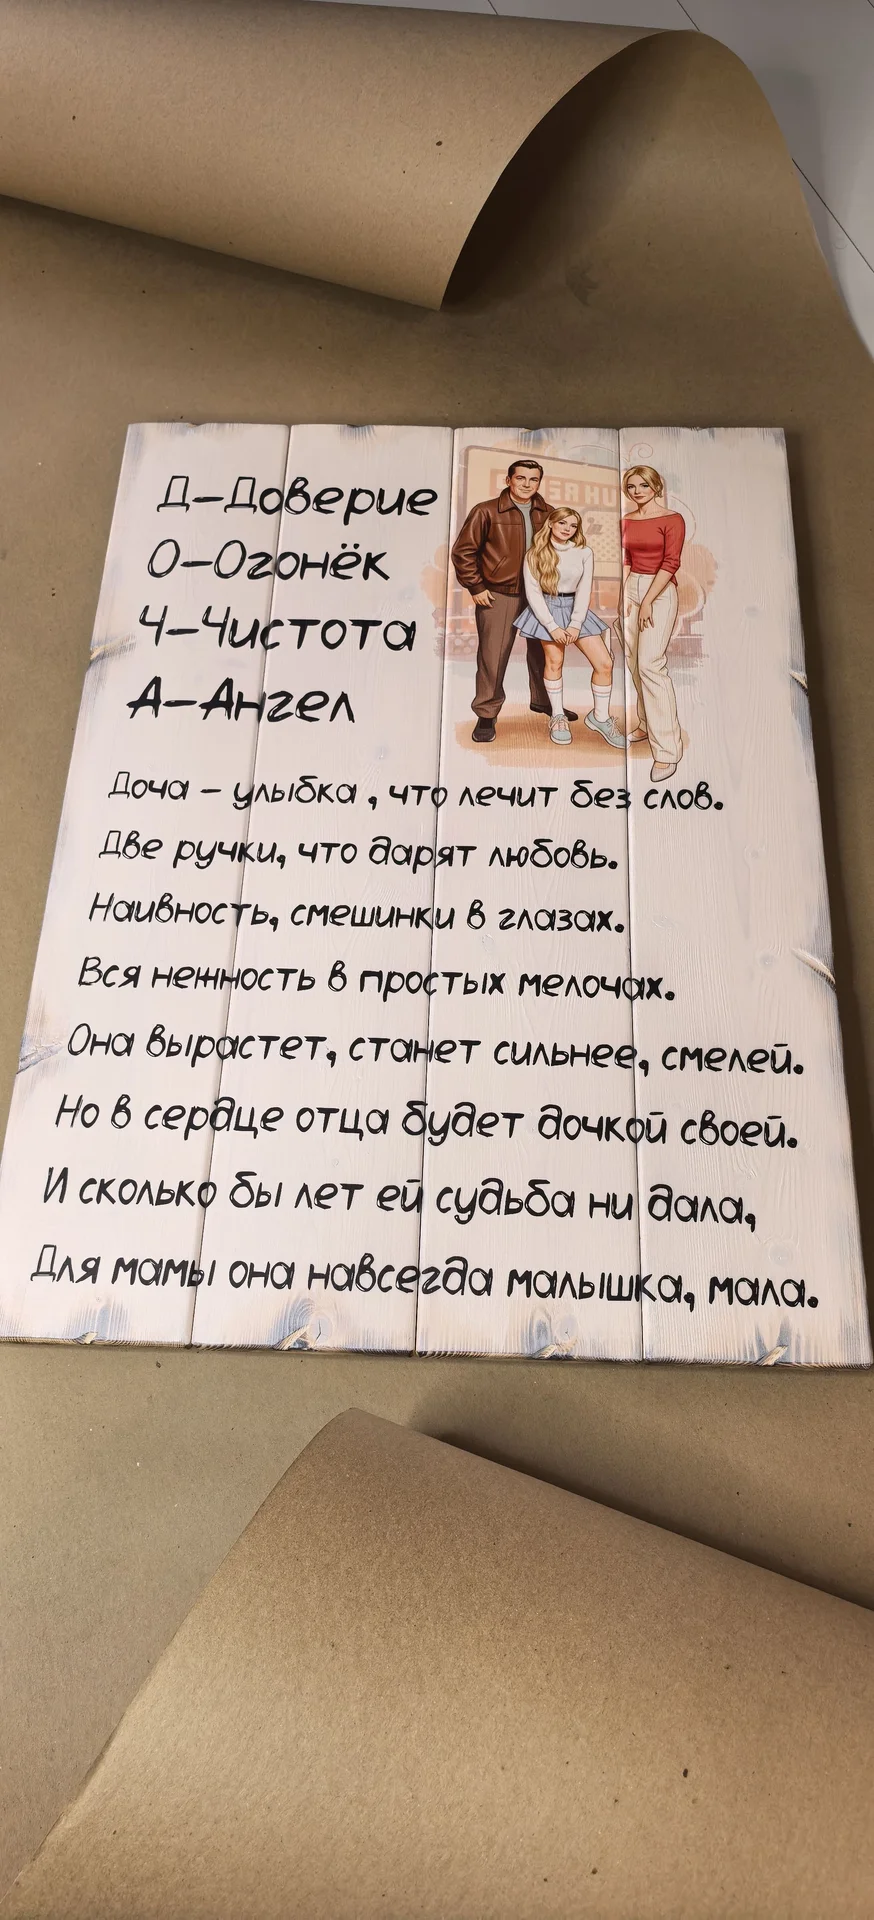 Д–Доверие
О–Огонёк
Ч–Чистота
А–Ангел
Доча – улыбка , что лечит без слов.
Две ручки, что дарят любовь.
Наивность, смешинки в глазах.
Вся нежность в простых мелочах.
Она вырастет, станет сильнее, смелей.
Но в сердце отца будет дочкой своей.
И сколько бы лет ей судьба ни дала,
Для мамы она навсегда малышка, мала.